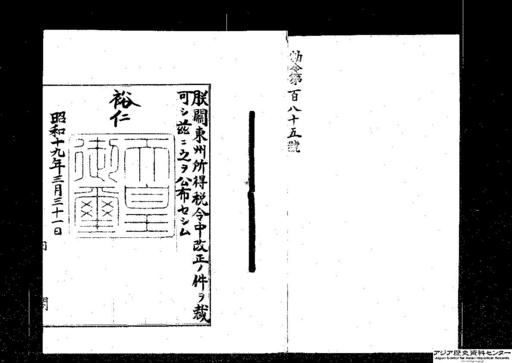 勅令第百八十五號
朕關東州所得税令中改正ノ件ヲ裁
可シ茲ニ之ヲ公布セシム
裕仁
天皇
御璽
昭和十九年三月三十一日
内閣
アジア歴史資料センター
Japan Center for Asian Historical Records